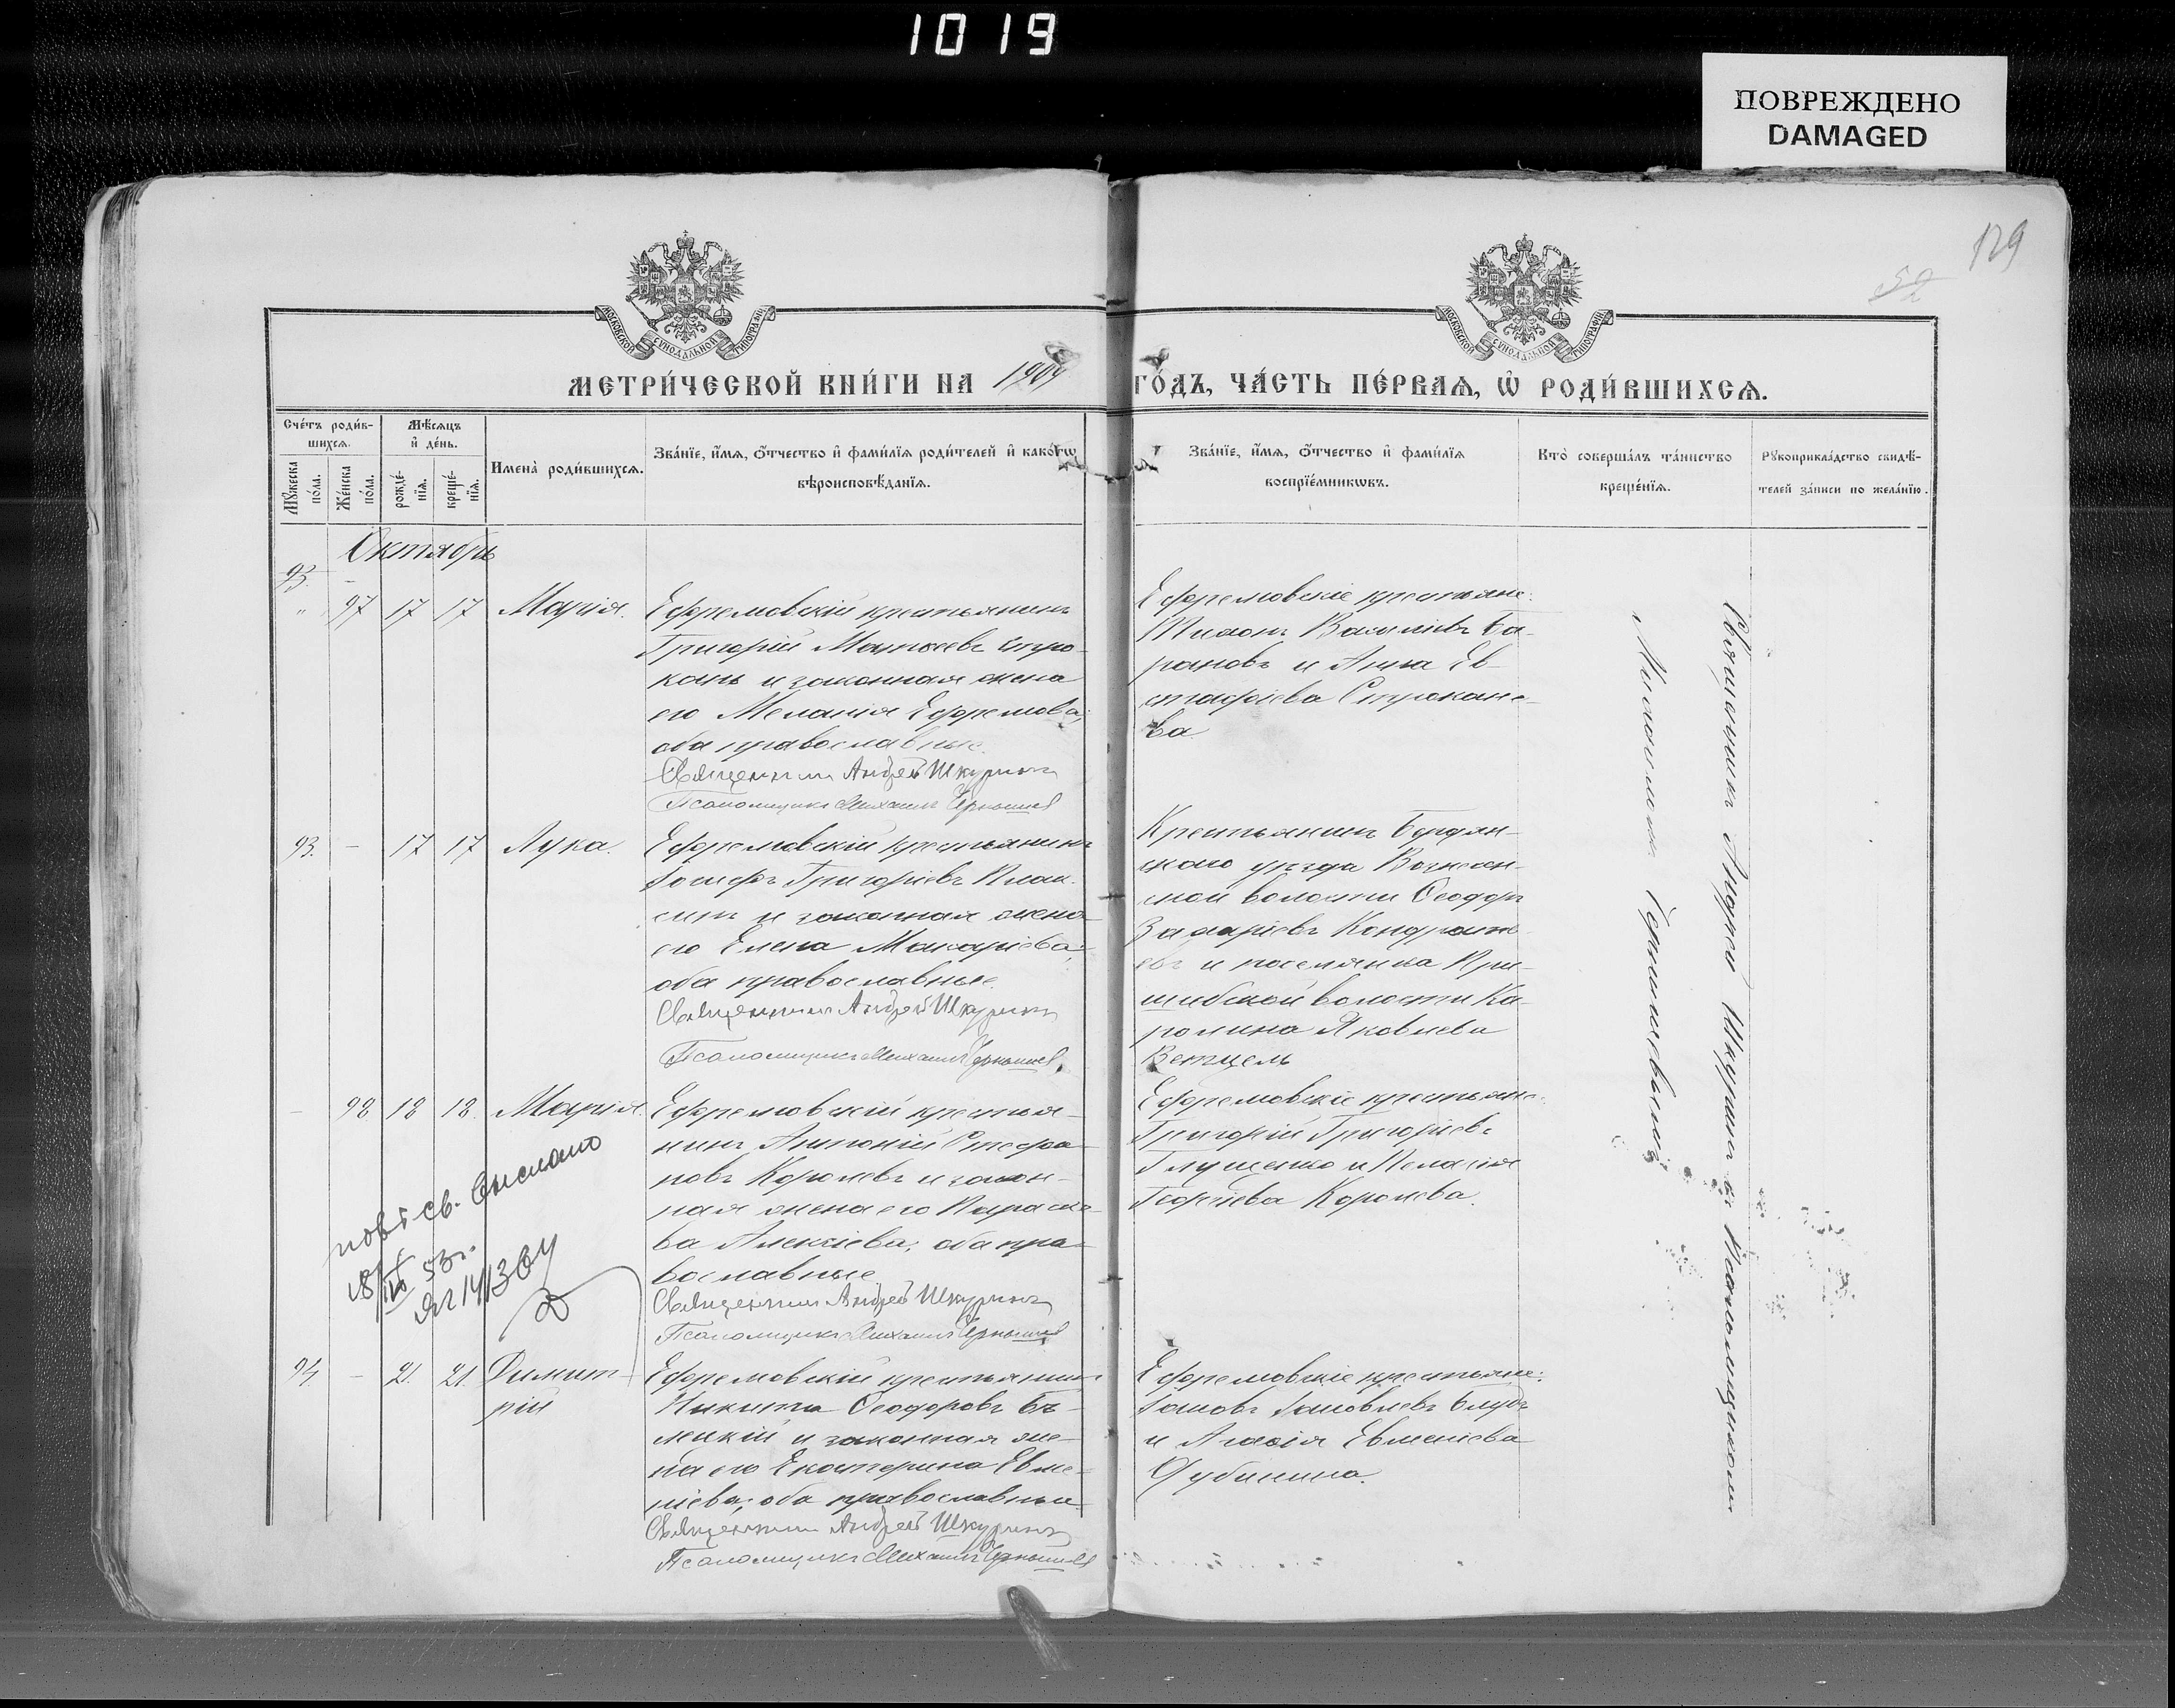 1019
ПОВРЕЖДЕНО
DAMAGED
129
52
МОСКОВСКОЙ СѴНОДАЛЬНОЙ ТИПОГРАФІИ
МОСКОВСКОЙ СѴНОДАЛЬНОЙ ТИПОГРАФІИ
МЕТРИ́ЧЕСКОЙ КНИ́ГИ НА 1909 ГО́ДЪ, ЧА́СТЬ ПЕ́РВАѦ, Ѡ҆ РОДИ́ВШИХСѦ.
Сче́тъ роди́в-
шихсѧ.
Мꙋ́жеска по́ла.
Же́нска по́ла.
Мѣ́сѧцъ
и҆ де́нь.
рожде́-
нїѧ.
креще́-
нїѧ.
Имена̀ роди́вшихсѧ.
Зва́нїе, и҆́мѧ, ѻ҆́тчество и҆ фами́лїѧ роди́телей и҆ како́гѡ
вѣроисповѣ́данїѧ.
Зва́нїе, и҆́мѧ, ѻ҆́тчество и҆ фами́лїѧ
воспрїе́мникѡвъ.
Кто̀ соверша́лъ та́инство
креще́нїѧ.
Рꙋкоприкла́дство свидѣ́-
телей за́писи по жела́нїю.
Октябрь
93.
" 97 17 17 Марія.
Ефремовскій крестьянинъ
Григорій Матѳеевъ Стро-
кань и законная жена
его Меланія Ефремова;
оба православные.
Священникъ Андрей Шкуринъ
Псаломщикъ Михаилъ Чернышев
Ефремовскіе крестьяне:
Тихонъ Василіевъ Ба-
рановъ и Анна Ев-
стафіева Строкане-
ва.
93. - 17 17 Лука.
Ефремовскій крестьянинъ
Іосифъ Григоріевъ Плак-
синъ и законная жена
его Елена Макаріева;
оба православные.
Священникъ Андрей Шкуринъ
Псаломщикъ Михаилъ Чернышев
Крестьянинъ Бердян-
скаго уѣзда Вознесен-
ской волости Ѳеодоръ
Захаріевъ Кондрать-
евъ и поселянка При-
шибской волости Ка-
ролина Яковлева
Ветцель
- 98 18 18. Марія.
Ефремовскій крестья-
нинъ Антоній Стефа-
новъ Королевъ и закон-
ная жена его Параске-
ва Алексіева; оба пра-
вославные
Священникъ Андрей Шкуринъ
Псаломщикъ Михаилъ Чернышев
Ефремовскіе крестьяне:
Григорій Григоріевъ
Глущенко и Пелагія
Георгіева Королева.
св. выслано
18/IV 53г.
94. - 21. 21. Димит-
рій
Ефремовскій крестьянинъ
Никита Ѳеодоровъ Бѣ-
ленкій и законная же-
на его Екатерина Евме-
ніева; оба православные
Священникъ Андрей Шкуринъ
Псаломщикъ Михаилъ Чернышев
Ефремовскіе крестьяне:
Іаковъ Іаковлевъ Блудъ
и Агаѳія Евменіева
Дубинина.
Священникъ Андрей Шкуринъ съ Псаломщикомъ
Михаиломъ Чернышевымъ